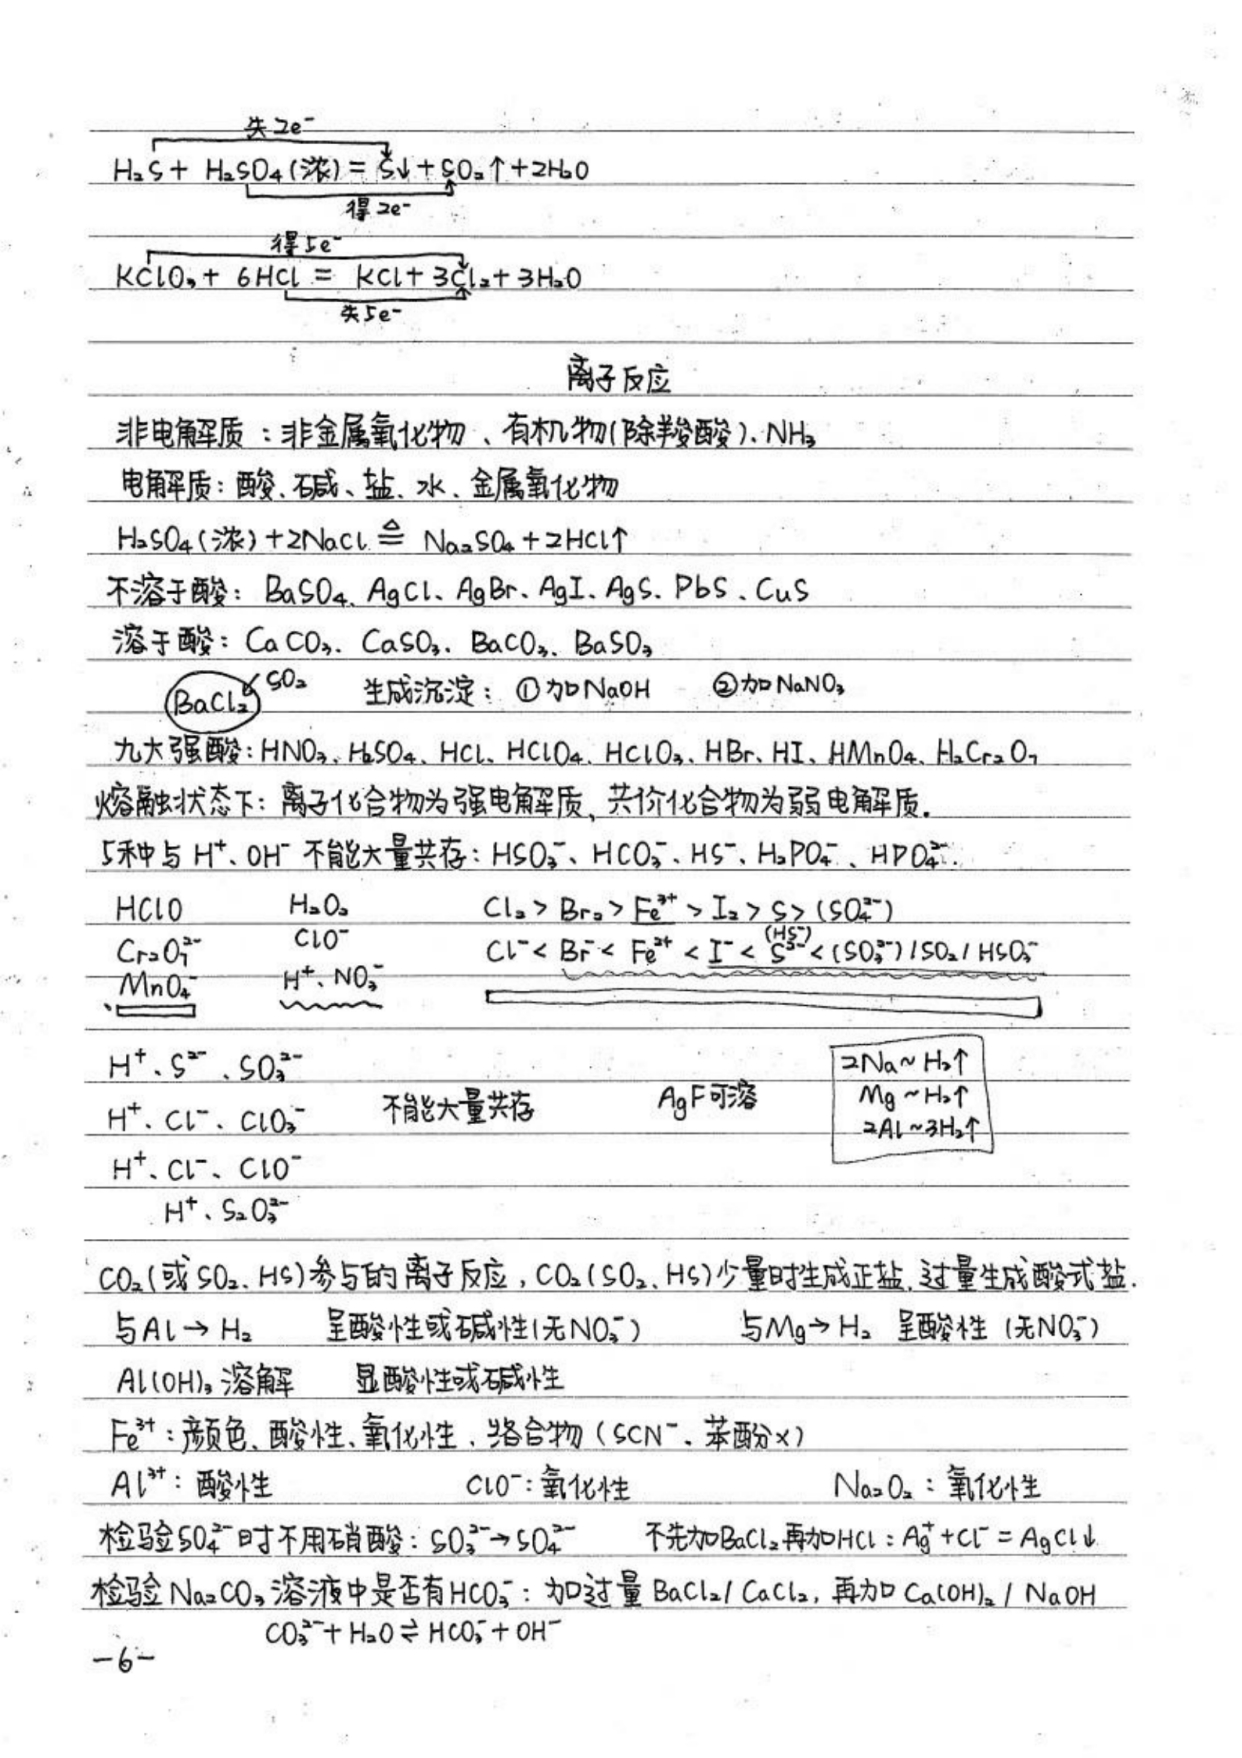 失2e⁻
H₂S + H₂SO₄(浓) = S↓ + SO₂↑ + 2H₂O
得2e⁻
得5e⁻
KClO₃ + 6HCl = KCl + 3Cl₂ + 3H₂O
失5e⁻
离子反应
非电解质：非金属氧化物、有机物(除羧酸)、NH₃
电解质：酸、碱、盐、水、金属氧化物
H₂SO₄(浓) + 2NaCl ≜ Na₂SO₄ + 2HCl↑
不溶于酸：BaSO₄、AgCl、AgBr、AgI、AgS、PbS、CuS
溶于酸：CaCO₃、CaSO₃、BaCO₃、BaSO₃
BaCl₂ ↙ SO₂ 生成沉淀：①加NaOH ②加NaNO₃
九大强酸：HNO₃、H₂SO₄、HCl、HClO₄、HClO₃、HBr、HI、HMnO₄、H₂Cr₂O₇
熔融状态下：离子化合物为强电解质、共价化合物为弱电解质.
5种中与H⁺、OH⁻不能大量共存：HSO₃⁻、HCO₃⁻、HS⁻、H₂PO₄⁻、HPO₄²⁻.
HClO H₂O₂ Cl₂ > Br₂ > Fe³⁺ > I₂ > S > (SO₄²⁻)
Cr₂O₇²⁻ ClO⁻ Cl⁻ < Br⁻ < Fe²⁺ < I⁻ < S²⁻ (HS⁻) < (SO₃²⁻) / SO₂ / HSO₃⁻
MnO₄⁻ H⁺、NO₃⁻
H⁺、S²⁻、SO₃²⁻ 2Na ~ H₂↑
H⁺、Cl⁻、ClO₃⁻ 不能大量共存 AgF可溶 Mg ~ H₂↑
2Al ~ 3H₂↑
H⁺、Cl⁻、ClO⁻
H⁺、S₂O₃²⁻
CO₂(或SO₂、HS)参与的离子反应，CO₂(SO₂、HS)少量时生成正盐、过量生成酸式盐.
与Al → H₂ 呈酸性或碱性(无NO₃⁻) 与Mg → H₂ 呈酸性 (无NO₃⁻)
Al(OH)₃溶解 显酸性或碱性
Fe³⁺：颜色、酸性、氧化性、络合物 (SCN⁻、苯酚×)
Al³⁺：酸性 ClO⁻：氧化性 Na₂O₂：氧化性
检验SO₄²⁻时不用硝酸：SO₃²⁻ → SO₄²⁻ 不先加BaCl₂再加HCl：Ag⁺ + Cl⁻ = AgCl↓
检验Na₂CO₃溶液中是否有HCO₃⁻：加过量BaCl₂ / CaCl₂, 再加Ca(OH)₂ / NaOH
CO₃²⁻ + H₂O ⇌ HCO₃⁻ + OH⁻
-6-